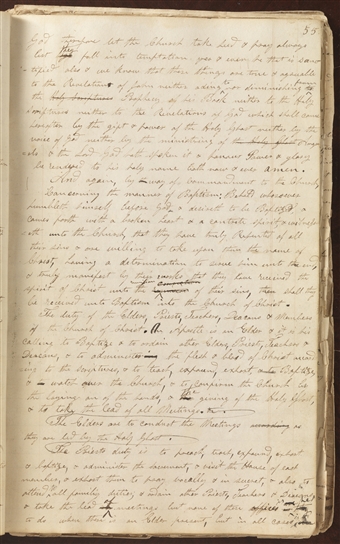 55
God therefore let the Church take heed & pray always
lest they fall into temptation yea & even he that is sanc
tified also & we know that these things are true & agreeable
to the Revelation of John neither adding nor diminishing to
the Prophecy of his Book neither to the Holy
Scriptures neither to the Revelations of God which shall come
hereafter by the gift & power of the Holy Ghost neither by the
voice of God neither by the ministering of angels
& the Lord God hath spoken it & honour Power & glory
be rendered to his holy name both now & ever amen
And again, by way of Commandment to the Church
Concerning the manner of Baptism. Behold whosoever
humbleth himself before God & desireth to be Baptized &
comes forth with a broken heart & a contrite spirit &
unto the Church, that they have truly Repented of all
their sins & are willing to take upon them the name of
Christ having a determination to serve him unto the end,
& truly manifest by their works that they have received the
spirit of Christ unto the remission of their sins, then shall they
be received unto Baptism into the Church of Christ.
The duty of the Elders, Priests, Teachers, Deacons & Members
of the Church of Christ. An Apostle is an Elder & it is his
calling to Baptize & to ordain other Elders, Priests, Teachers &
Deacons, & to administer the flesh & blood of Christ accord
ing to the Scriptures, & to teach, expound, exhort, Baptize,
& watch over the Church, & to confirm the Church by
the laying on of the hands, & the giving of the Holy Ghost,
& to take the lead of all Meetings.
The Elders are to conduct the Meetings as
they are led by the Holy Ghost.
The Priests duty is to preach, teach, expound, exhort
& baptize, & administer the sacrament, & visit the House of each
member, & exhort them to pray vocally & in secret, & also to
attend to all family duties, & ordain other Priests, Teachers & Deacons
& take the lead of meetings but none of these offices
to do when there is an Elder present, but in all cases,